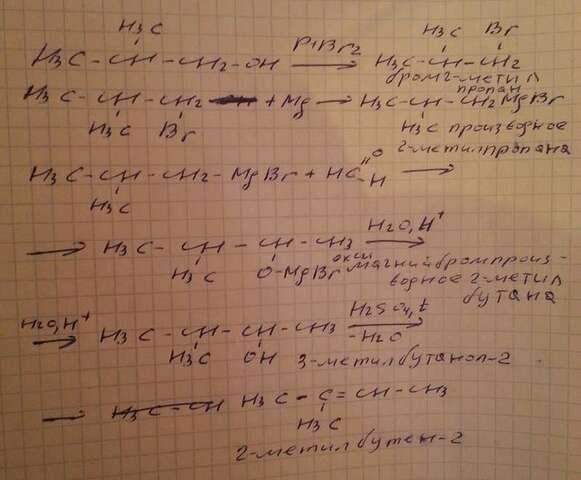 H3C Br
H3C - CH - CH2 - OH P, Br2 → H3C - CH - CH2
H3C
бром 2-метил
пропан
H3C - CH - CH2 + Mg → H3C - CH - CH2 MgBr
H3C Br H3C производное
2-метилпропана
H3C - CH - CH2 - MgBr + HC =O - H →
H3C
→ H3C - CH - CH - CH3 H2O, H+ →
H3C O-MgBr окси магнийбромпроиз-
водное 2-метил
бутана
H2O, H+ → H3C - CH - CH - CH3 H2SO4, t -H2O →
H3C OH 3-метилбутанол-2
→ H3C - CH H3C - C = CH - CH3
H3C
2-метилбутен-2